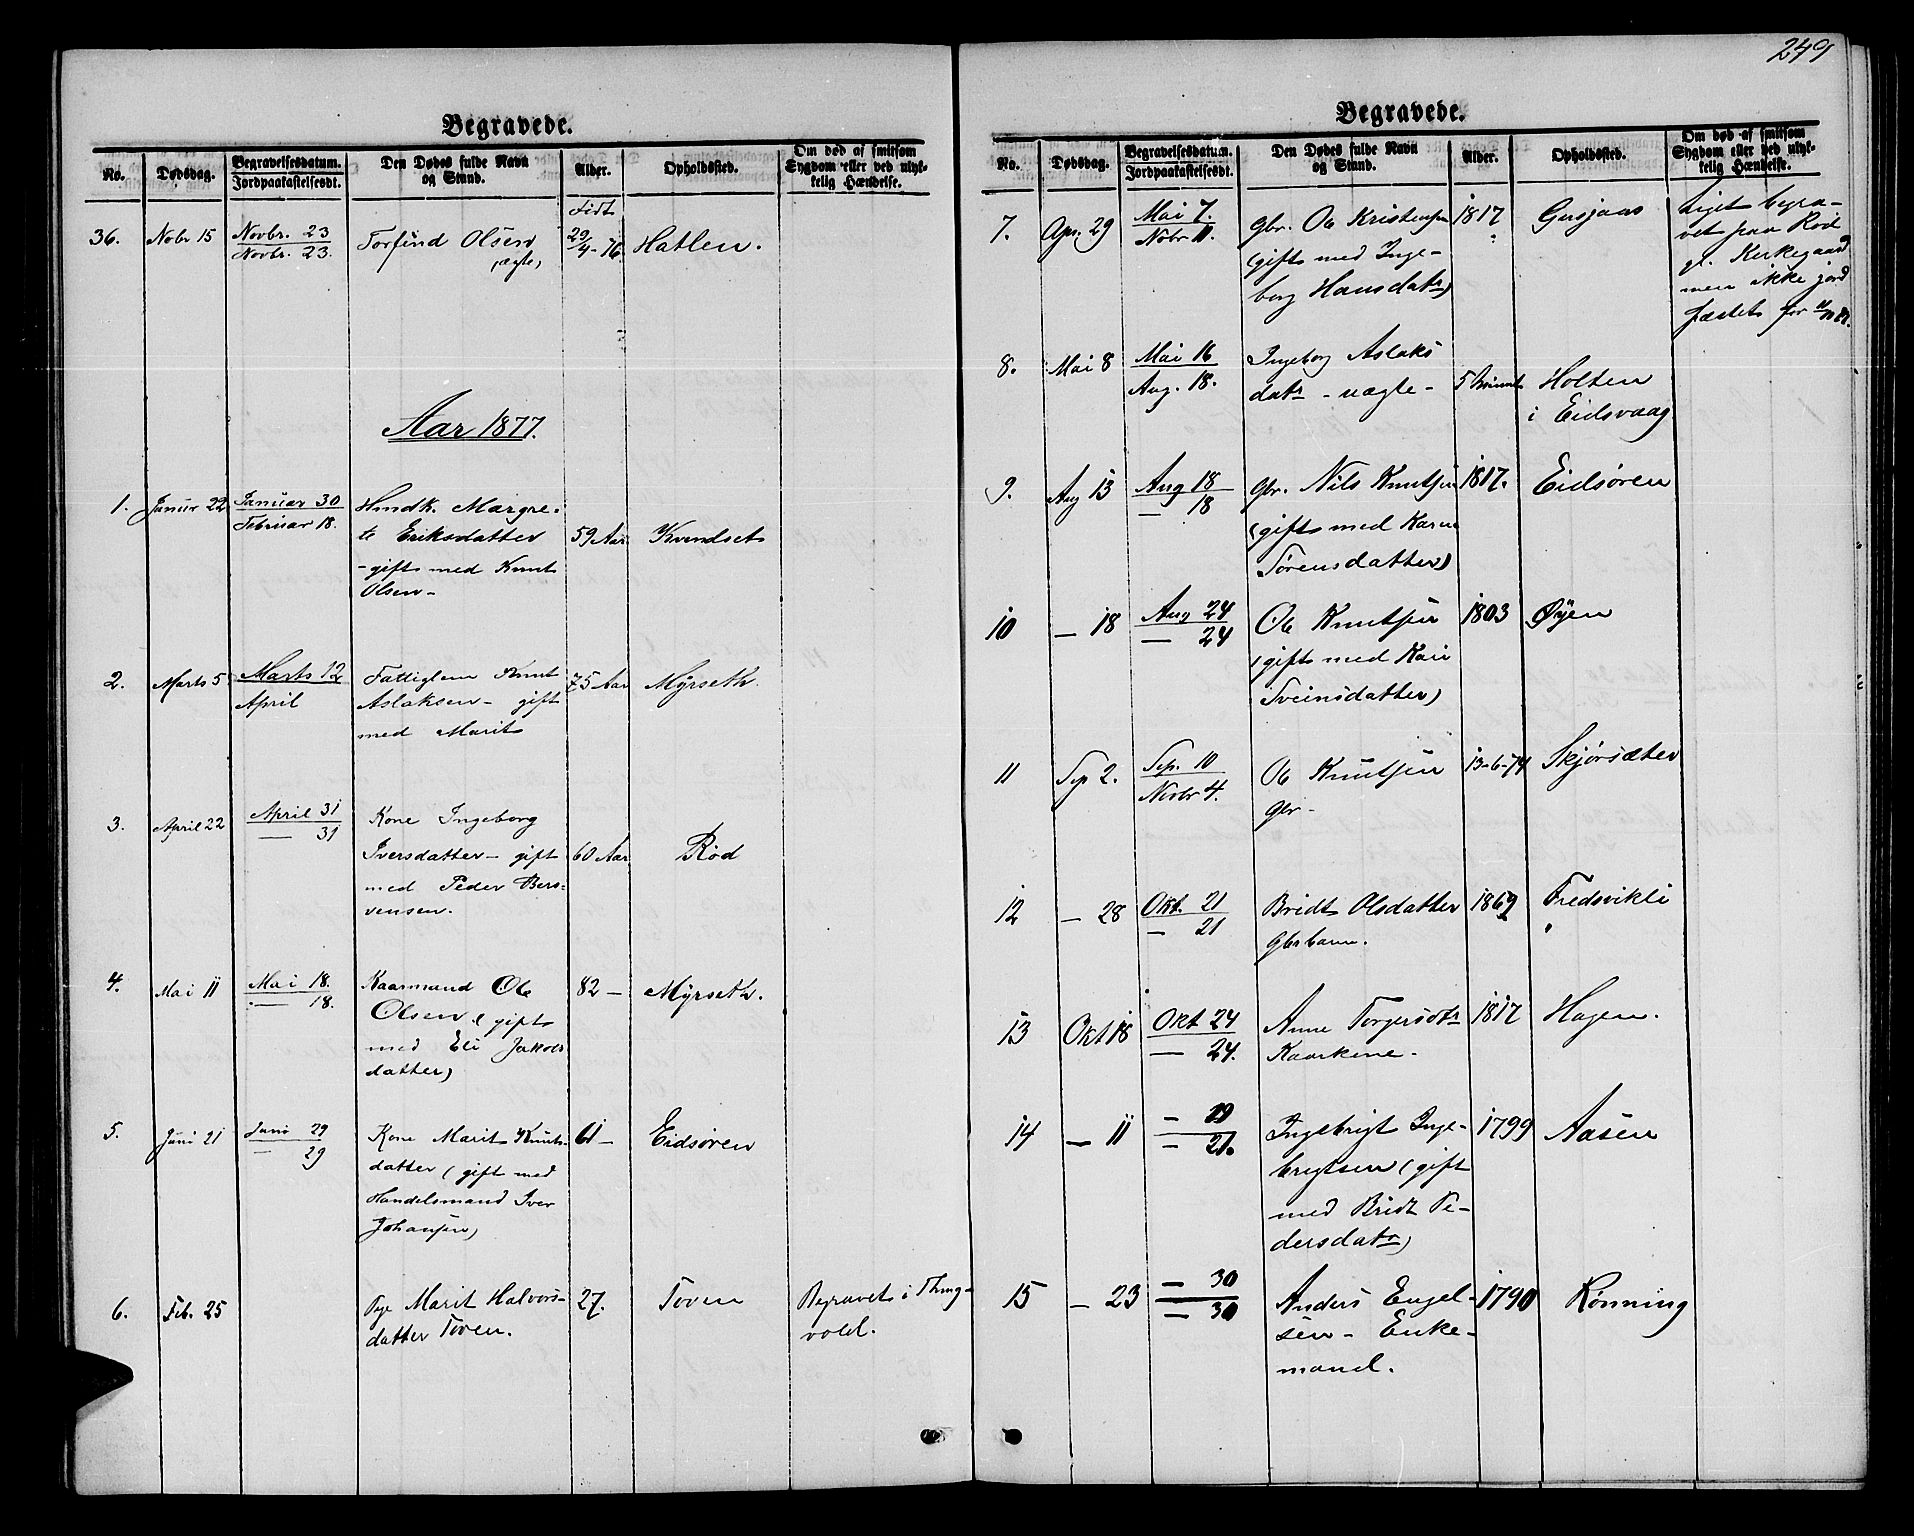 249
Begravede.
No. Dødsdag. Begravelsesdatum. Jordpaakastelsesdt. Den Dødes fulde Navn og Stand. Alder. Opholdssted. Om død af smitsom Sygdom eller ved ulykkelig Hændelse.
36. Nobr 15 Novbr. 23 Torfind Olsen Fidt 29/4-76 Hatlen.
Novbr. 23. (ægte)
Aar 1877.
1. Januar 22 Januar 30 Hmdk. Margre-
Februar 18. te Eriksdatter 59 Aar Kvendset
-gift med Knut
Olsen-
2. Marts 5 Marts 12 Fattiglem Knut 75 Aar Myrseth.
April Aslaksen- gift
med Marit
3. April 22 April 31 Kone Ingeborg
— 31 Iversdatter- gift 60 Aar Rød
med Peder Bers-
vensen.
4. Mai 11 Mai 18. Kaarmand Ole 82 — Myrseth.
— 18. Olsen (gift
med Eli Jakobs
datter)
5. Juni 21 Juni 29 Kone Marit Knuts- 61 — Eidsøren
— 29 datter (gift med
Handelsmand Iver
Johansen)
6. Feb. 25 Pge Marit Halvors- 27. Toven Begravet i Thing-
datter Toven. vold.
Begravede.
No. Dødsdag. Begravelsesdatum. Jordpaakastelsesdt. Den Dødes fulde Navn og Stand. Alder. Opholdssted. Om død af smitsom Sygdom eller ved ulykkelig Hændelse.
7. Apr. 29 Mai 7. Gbr. Ole Kristensen 1817 Gusjaas Liget begra-
Nobr 11. (gift med Inge- vet paa Rød
borg Hansdatr) gl. Kirkegaard
men ikke jord
fæstet før
8. Mai 8 Mai 16 Ingeborg Aslaks
Aug. 18. datr - uægte - 5 Holten
i Eidsvaag
9. Aug 13 Aug 18 Gbr. Nils Knutsen 1817. Eidsøren
— 18 (gift med Karen
Sørensdatter)
10 — 18 Aug 24 Ole Knutsen 1803 Øyen
— 24 (gift med Kari
Sveinsdatter)
11 Sep 2. Sep. 10 Ole Knutsen 13-6-74 Skjørsæter
Novbr 4. Gbr-
12 — 28 Okt. 21 Bridt Olsdatter 1869 Fredsvikli
— 21 Gbrbarn.
13 Okt 18 Okt 24 Anne Torgersdtr 1817 Hagen.
— 24. Kaarkone.
14 — 11 — 19 Ingebrigt Inge- 1799 Aasen
— 21. brigtsen (gift
med Bridt Pe-
dersdatr)
15 — 23 — 30 Anders Engel- 1790 Rønning
— 30 sen- Enke-
mand.